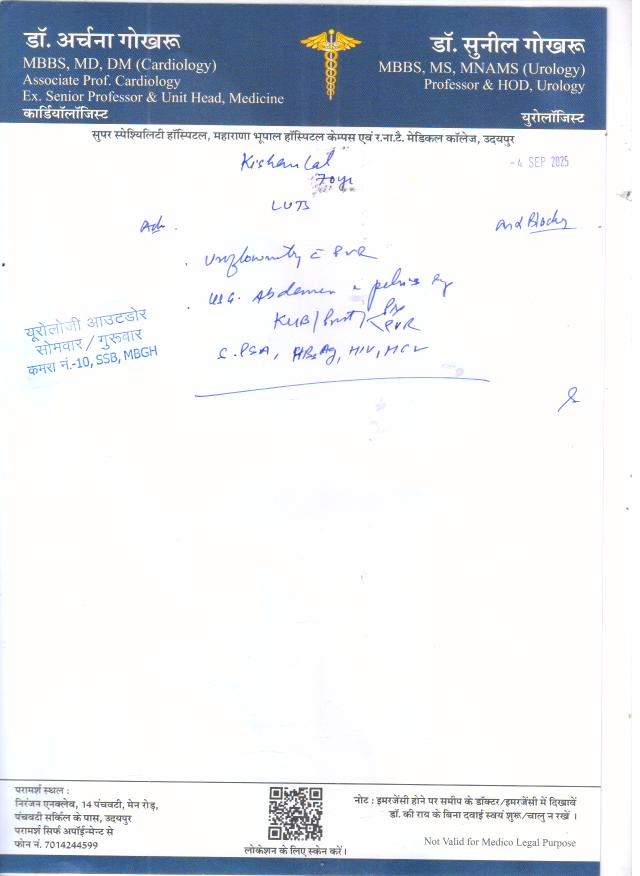 डॉ. अर्चना गोखरू
MBBS, MD, DM (Cardiology)
Associate Prof. Cardiology
Ex. Senior Professor & Unit Head, Medicine
कार्डियॉलॉजिस्ट
डॉ. सुनील गोखरू
MBBS, MS, MNAMS (Urology)
Professor & HOD, Urology
युरोलॉजिस्ट
सुपर स्पेश्यिलिटी हॉस्पिटल, महाराणा भूपाल हॉस्पिटल केम्पस एवं र.ना.टै. मेडिकल कॉलेज, उदयपुर
Kishan Lal
- 4 SEP 2025
70yr
LUTS
Adv.
Uroflowmetry c PVR
USG. Abdomen & pelvis
KUB/Prost
PVR
S. PSA, HBsAg, HIV, HCV
यूरोलोजी आउटडोर
सोमवार / गुरूवार
कमरा नं.-10, SSB, MBGH
परामर्श स्थल :
निरंजन एनक्लेव, 14 पंचवटी, मेन रोड़,
पंचवटी सर्किल के पास, उदयपुर
परामर्श सिर्फ अपॉईन्मेन्ट से
फोन नं. 7014244599
लोकेशन के लिए स्केन करें।
नोट : इमरजेंसी होने पर समीप के डॉक्टर/इमरजेंसी में दिखावें
डॉ. की राय के बिना दवाई स्वयं शुरू/चालु न रखें ।
Not Valid for Medico Legal Purpose